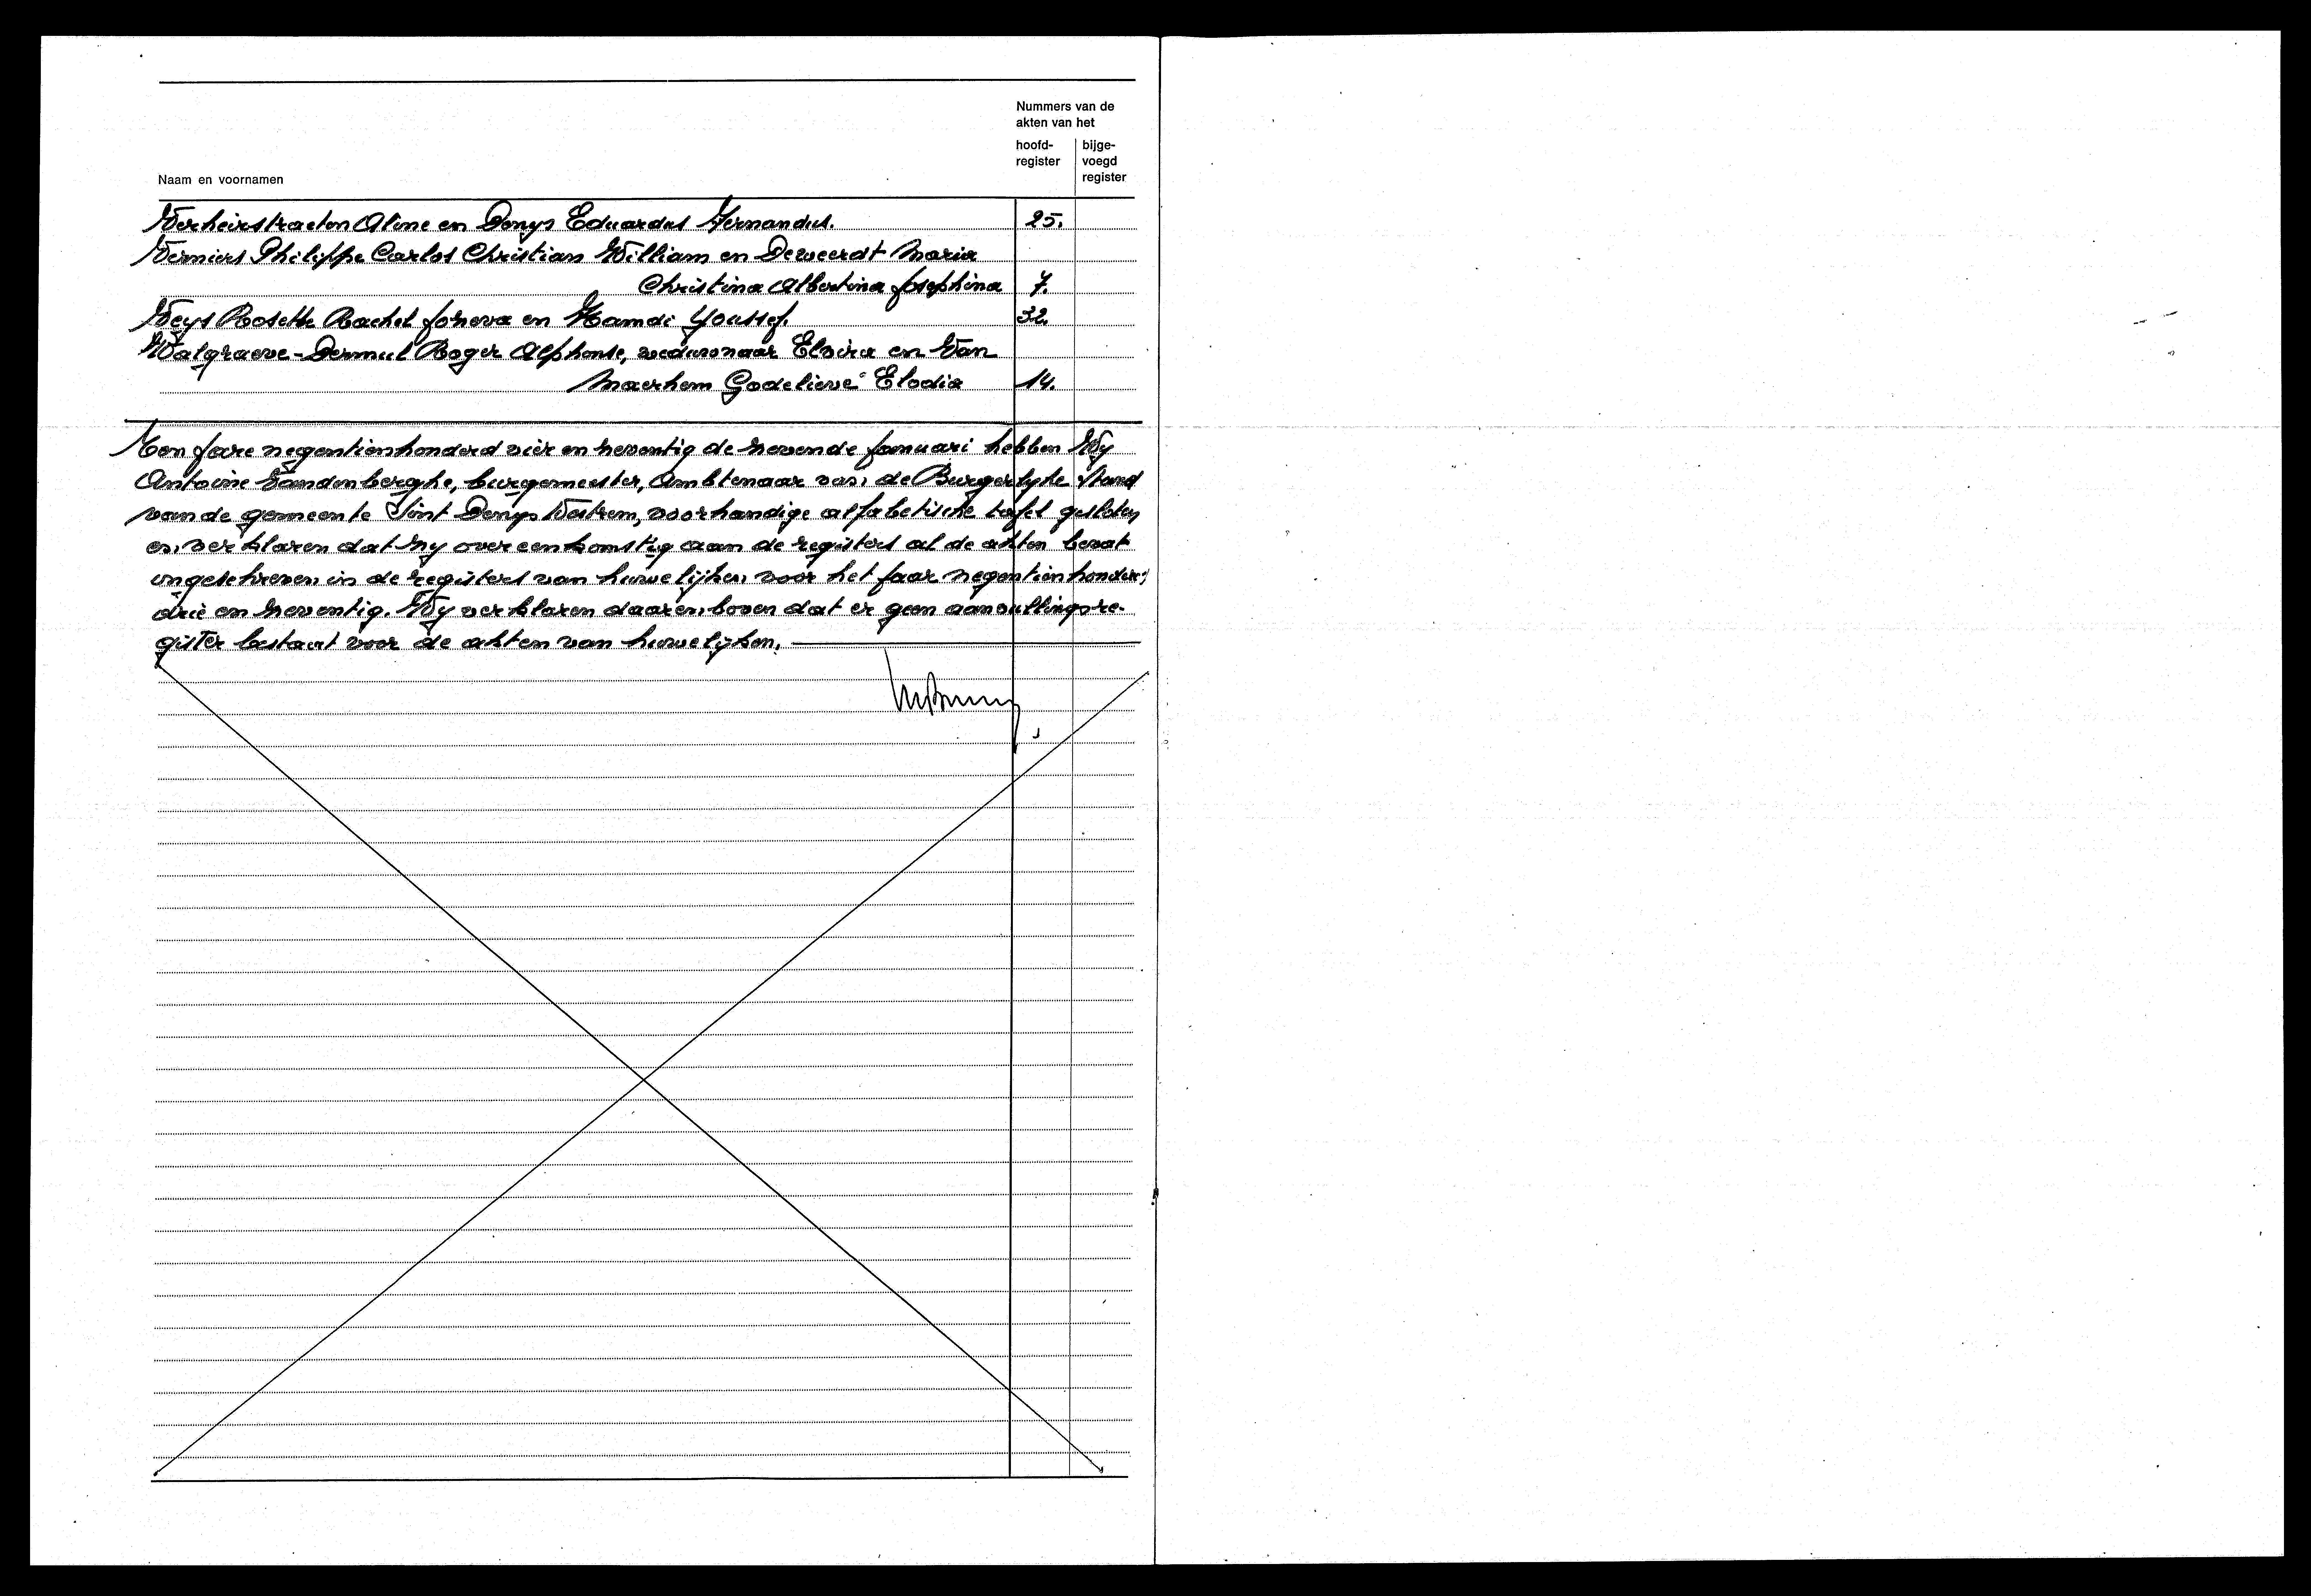 Nummers van de
akten van het
hoofd-
register
bijge-
voegd
register
Naam en voornamen
Verheirstraeten Aline en Denys Eduardus Fernandus. 25.
Verniers Philippe Carlos Christian William en Deweerdt Maria
Christina Albertina Josephina 7.
Weys Rosette Rachel en Hamdi Youssef. 32.
Walgraeve-Dermul Roger Alphonse, weduwnaar Elvira en Van
Maerhem Godelieve Elodia 14.
Ten jare negentienhonderd vier en zeventig de zevende januari hebben Wy
Antoine Vandenberghe, burgemeester, Ambtenaar van de Burgerlyke Stand
van de gemeente Sint Denys Westrem, voorhandige alfabetische tafel gesloten
en verklaren dat zy overeenkomstig aan de registers al de akten bevat
ingeschreven in de registers van huwelijken voor het jaar negentienhonderd
drie en zeventig. Wy verklaren daarenboven dat er geen aanvullingsre-
gister bestaat voor de akten van huwelijken.